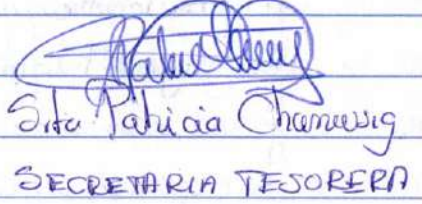 Srta Patricia Chanausig
SECRETARIA TESORERA